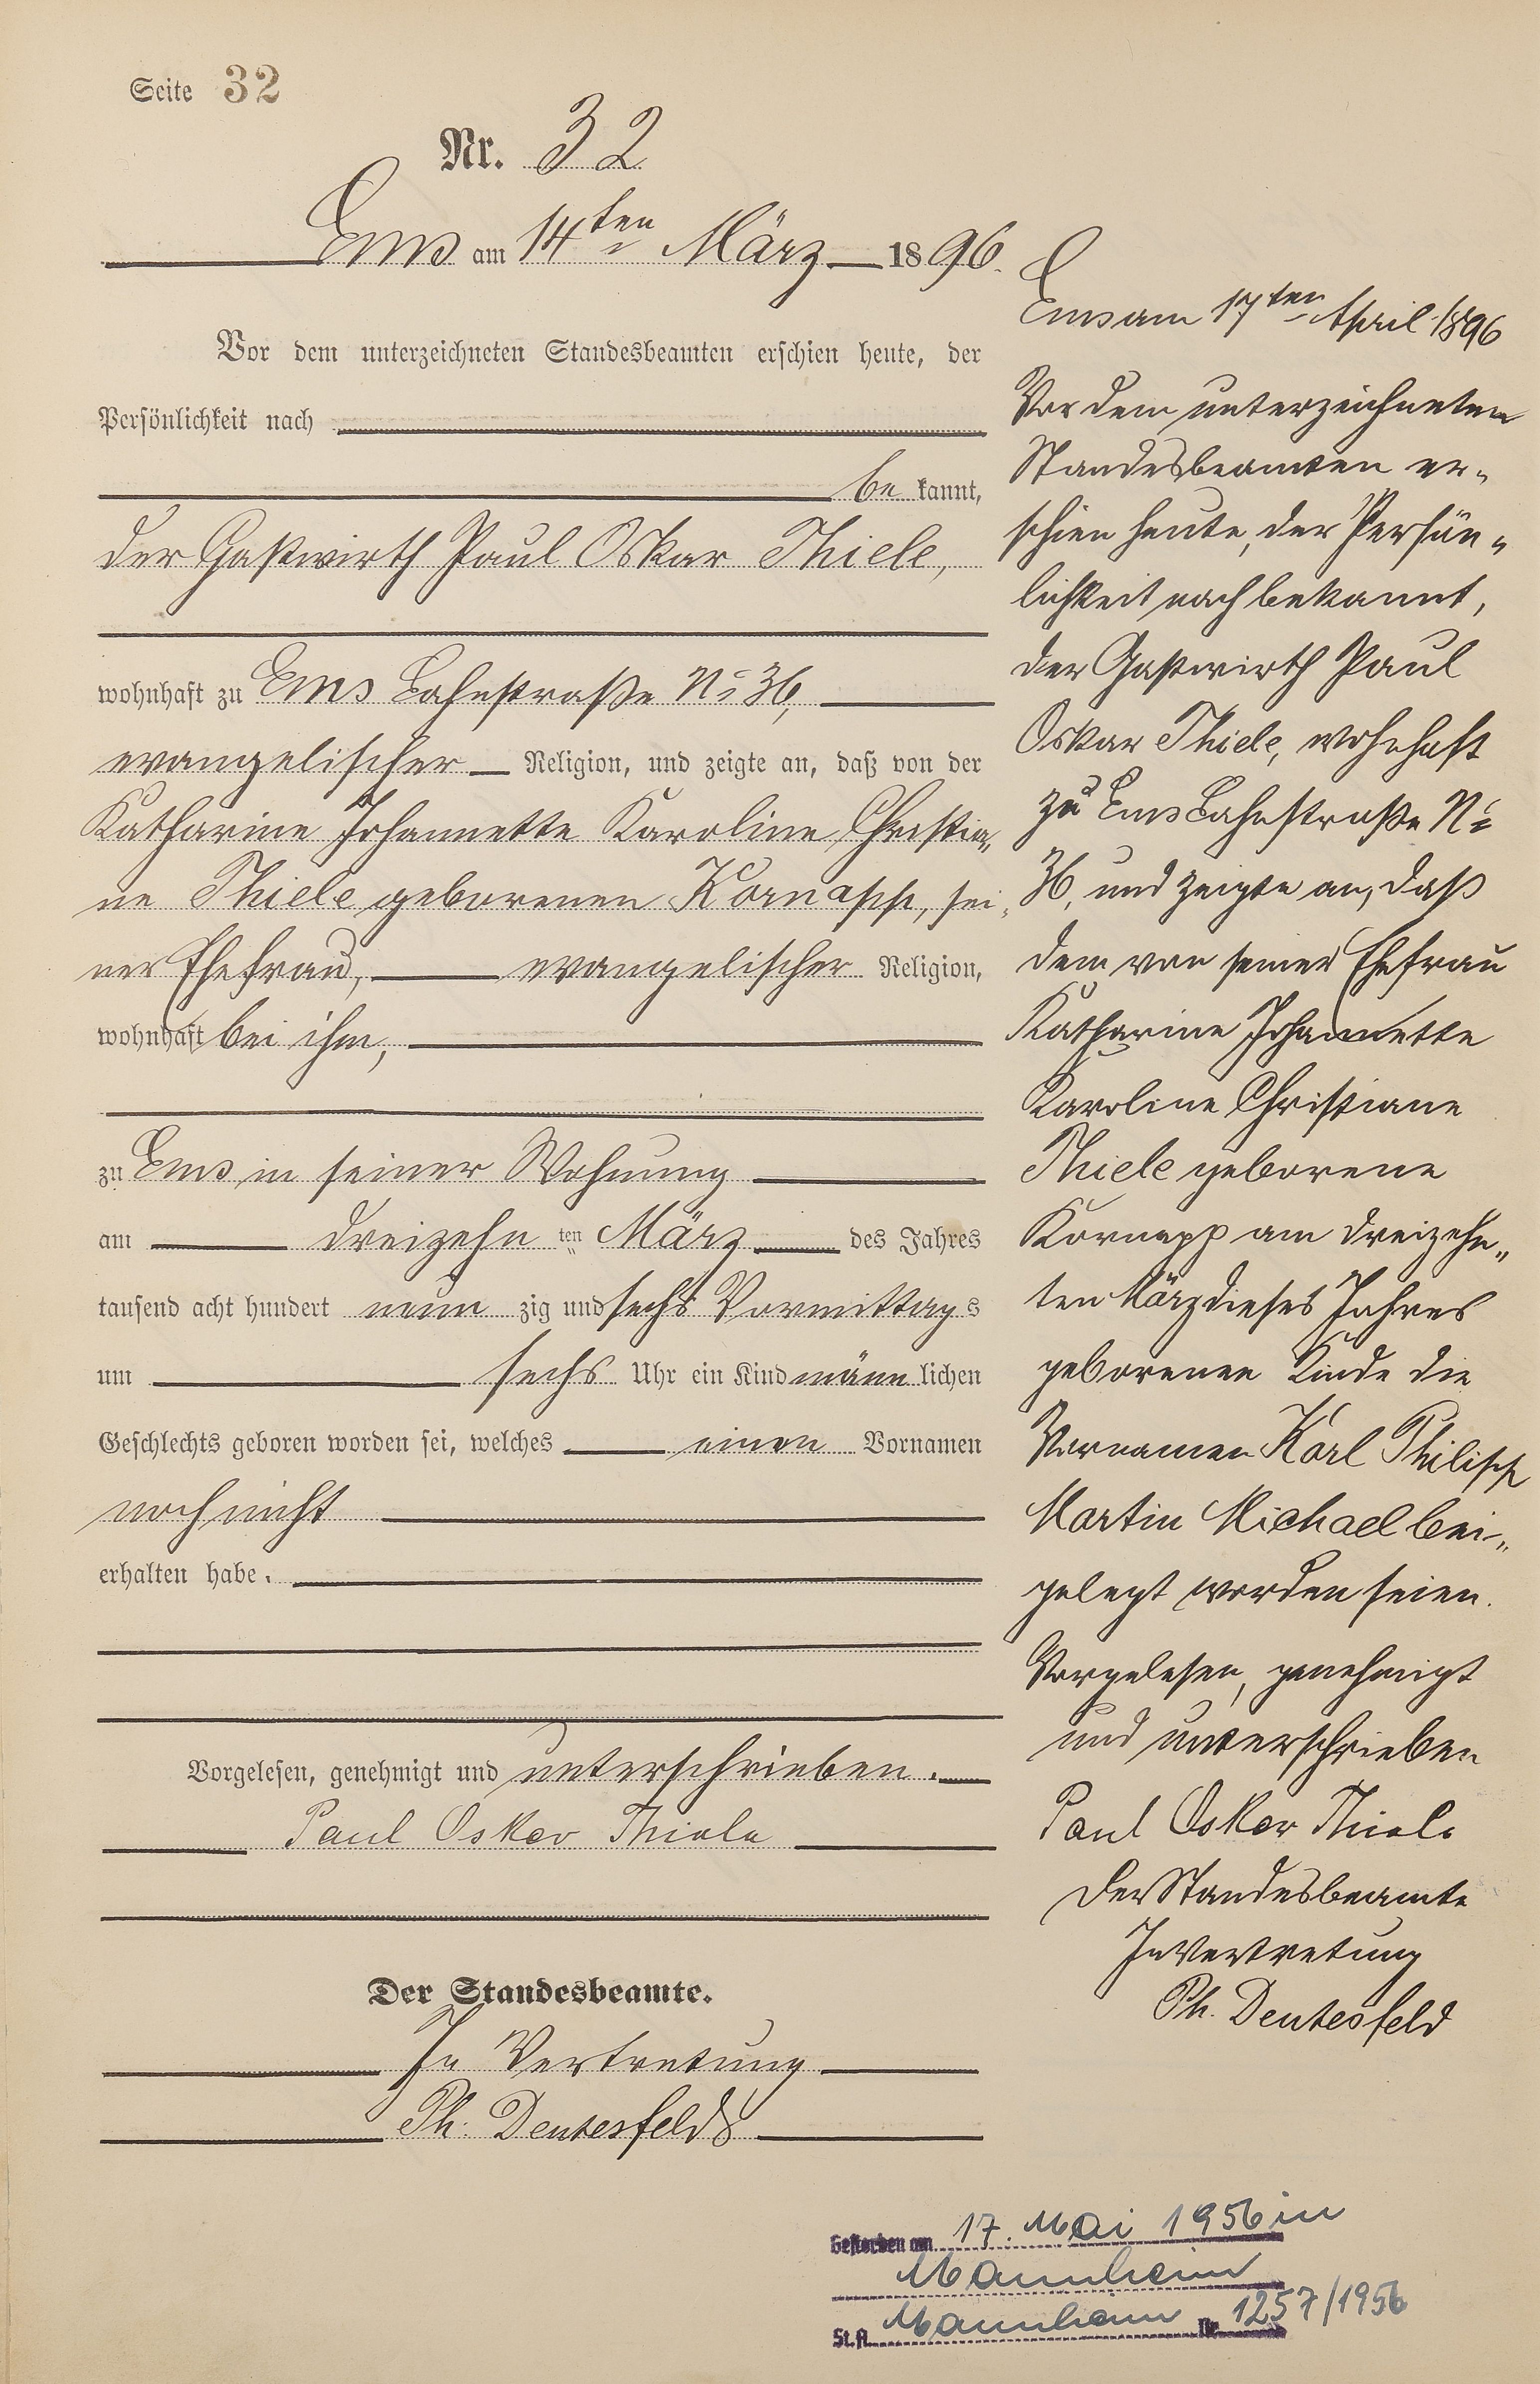 Seite 32
Nr. 32
Ems am 14ten März 1896.
Vor dem unterzeichneten Standesbeamten erschien heute, der
Persönlichkeit nach
be kannt,
der Gastwirth Paul Oskar Thiele,
wohnhaft zu Ems Lahnstraße No 36,
evangelischer Religion, und zeigte an, daß von der
Katharine Johannette Karoline Christia„
ne Thiele geborenen Kornapp, sei„
ner Ehefrau, evangelischer Religion,
wohnhaft bei ihm,
zu Ems in seiner Wohnung
am dreizehn ten März des Jahres
tausend acht hundert neun zig und sechs Vormittags
um sechs Uhr ein Kind männ lichen
Geschlechts geboren worden sei, welches einen Vornamen
noch nicht
erhalten habe.
Vorgelesen, genehmigt und unterschrieben.
Paul Oskar Thiele
Der Standesbeamte.
In Vertretung
Ph. Deutesfeld
Ems am 17ten April 1896
Vor dem unterzeichneten
Standesbeamten er„
schien heute, der Persön„
lichkeit nach bekannt,
der Gastwirth Paul
Oskar Thiele, wohnhaft
zu Ems Lahnstraße No
36, und zeigte an, daß
dem von seiner Ehefrau
Katharine Johannette
Karoline Christiane
Thiele geborene
Kornapp am dreizehn„
ten März dieses Jahres
geborenen Kinde die
Vornamen Karl Philipp
Martin Michael bei„
gelegt worden seien.
Vorgelesen, genehmigt
und unterschrieben
Paul Oskar Thiele
Der Standesbeamte
In Vertretung
Ph. Deutesfeld
Gestorben am 17. Mai 1956 in
Mannheim
St.A. Mannheim Nr. 1257/1956